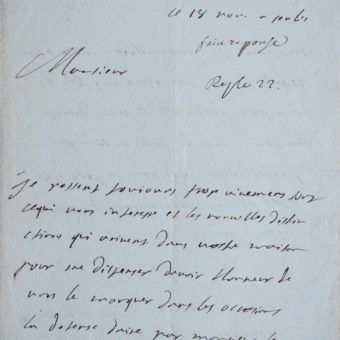 ce 18
faire reponse
Monsieur
Rep le 22.
je ressens toujours trop vivement tout
ce qui vous interesse et les nouvelles distin
ctions qui arrivent dans vostre maison
pour me dispenser davoir lhonneur de
vous le marquer dans les occasions
la